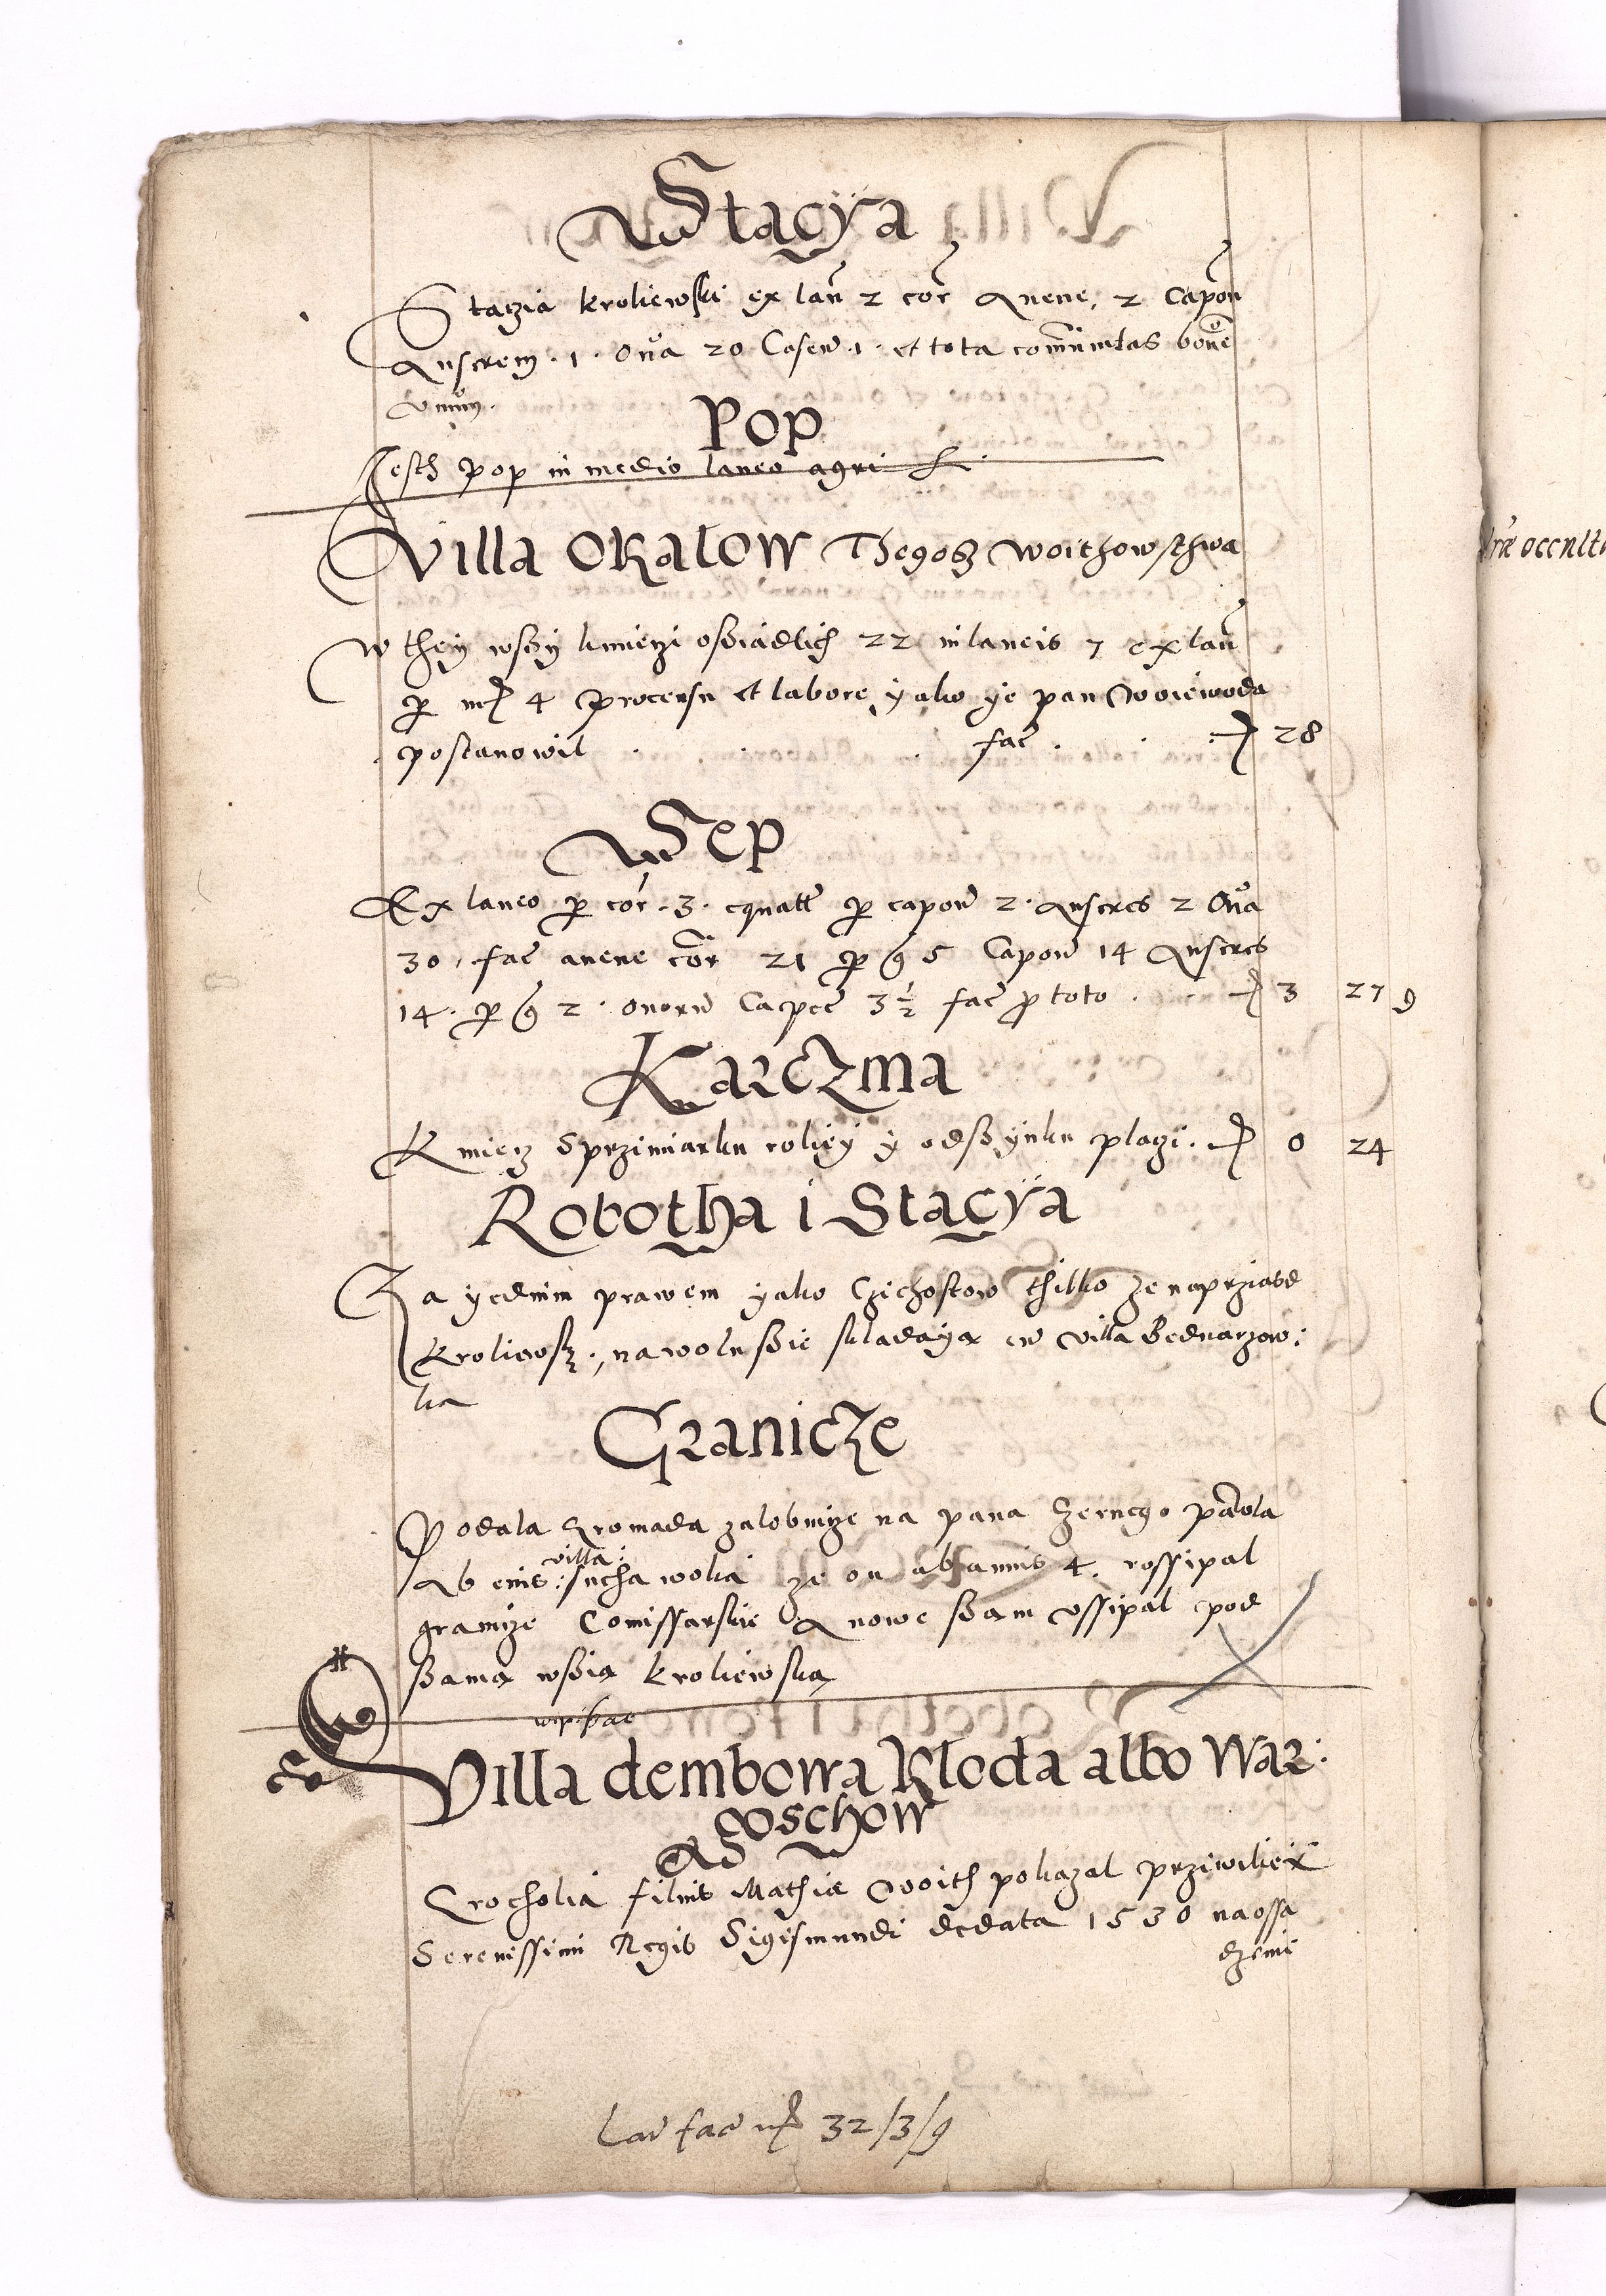 Stacÿa
Staczia kroliewski ex lan̄ 2 cor̄ Auene, 2 Capon̄
Anserem . 1 . Oŭa 20 Caseū .1. et tota com̄unitas bouē
vnŭm.
Pop
Jesth pop in medio laneo agri
Villa Okalow Thegosz Woithowsthwa
W theÿ wsßÿ kmieczi osßiadlich 22 in laneis 7 ex lan̄
per mr̄ 4 procensu et labore yako ye pan Woiewoda
postanowil . . . fac̄ . . 28
Sep
Ex laneo per cor̄ . 3 . equatt̄ per capon̄ 2 . Anseres 2 Oŭa
30 . fac̄ auene cor̄ 21 per g 5 Capon̄ 14 Anseres
14 . per g 2 . ouorū Capec̄ 3½ fac̄ pro toto . 3 27 9
Karczma
Kmiecz Sprzimiarku roliey ÿ odsßÿnku placzi . 0 24
Robotha i Stacÿa
Za yednim prawem yako Czichostow thilko ze naprziasd
kroliewsk., na wolu sßie skladaya cū villa Bednarzow:
ka
Granicze
Podala Gromada zalobnicze na pana Czernego
villa:
Ab eius: sucha wolia ze on ab annis 4. rossipal
granicze Comissarskie A nowe sßam vssipal pod
sßama wsßia kroliewska
Villa dembowa Kloda albo War:
goschow
Grocholia filius Mathiæ Woith pokazal prziwiliei
Serenissimi Regis Sigismundi de data 1530 na ossa
dzeni
Lat̄ fac̄ mr̄ 32/3/9